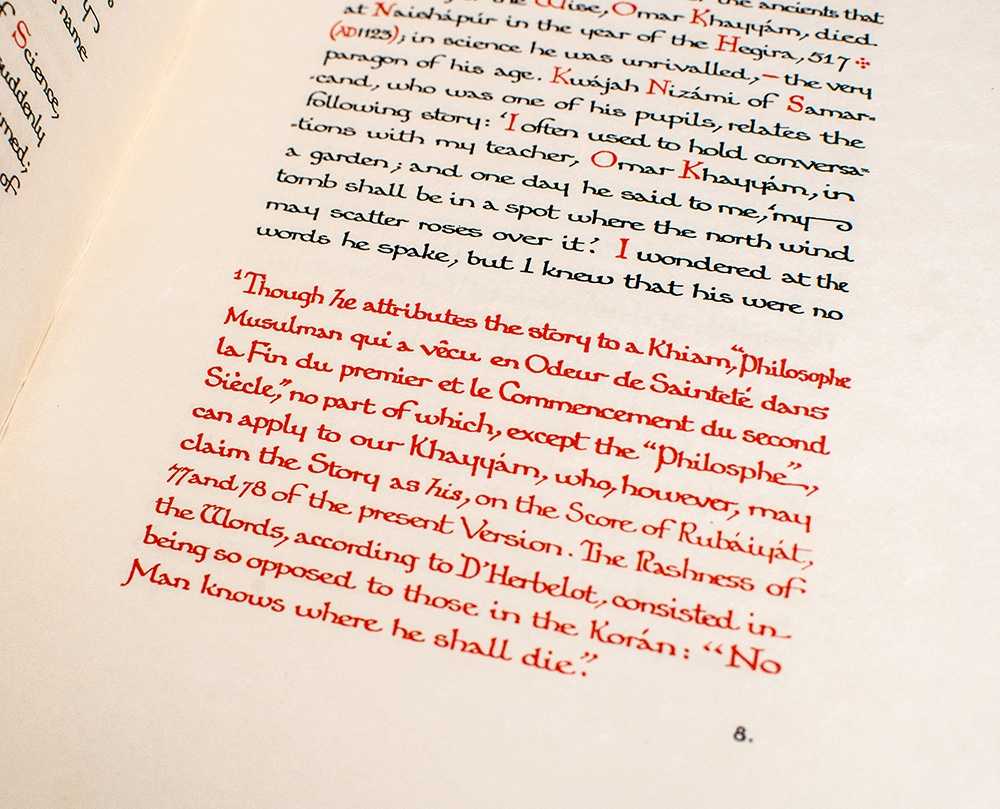 name
Science,
suddenly
of
the ancients that
Wise, Omar Khayyám, died
at Naishápúr in the year of the Hegira, 517
(AD1123); in science he was unrivalled,— the very
paragon of his age. Kwájah Nizámi of Samar-
-cand, who was one of his pupils, relates the
following story: ‘I often used to hold conversa-
-tions with my teacher, Omar Khayyám, in
a garden; and one day he said to me, ‘my
tomb shall be in a spot where the north wind
may scatter roses over it.’ I wondered at the
words he spake, but I knew that his were no
¹Though he attributes the story to a Khiam, “Philosophe
Musulman qui a vêcu en Odeur de Sainteté dans
la Fin du premier et le Commencement du second
Siècle,” no part of which, except the “Philosphe”,
can apply to our Khayyám, who, however, may
claim the Story as his, on the Score of Rubáiyát,
77 and 78 of the present Version. The Rashness of
the Words, according to D’Herbelot, consisted in
being so opposed to those in the Korán: “No
Man knows where he shall die.”
8.